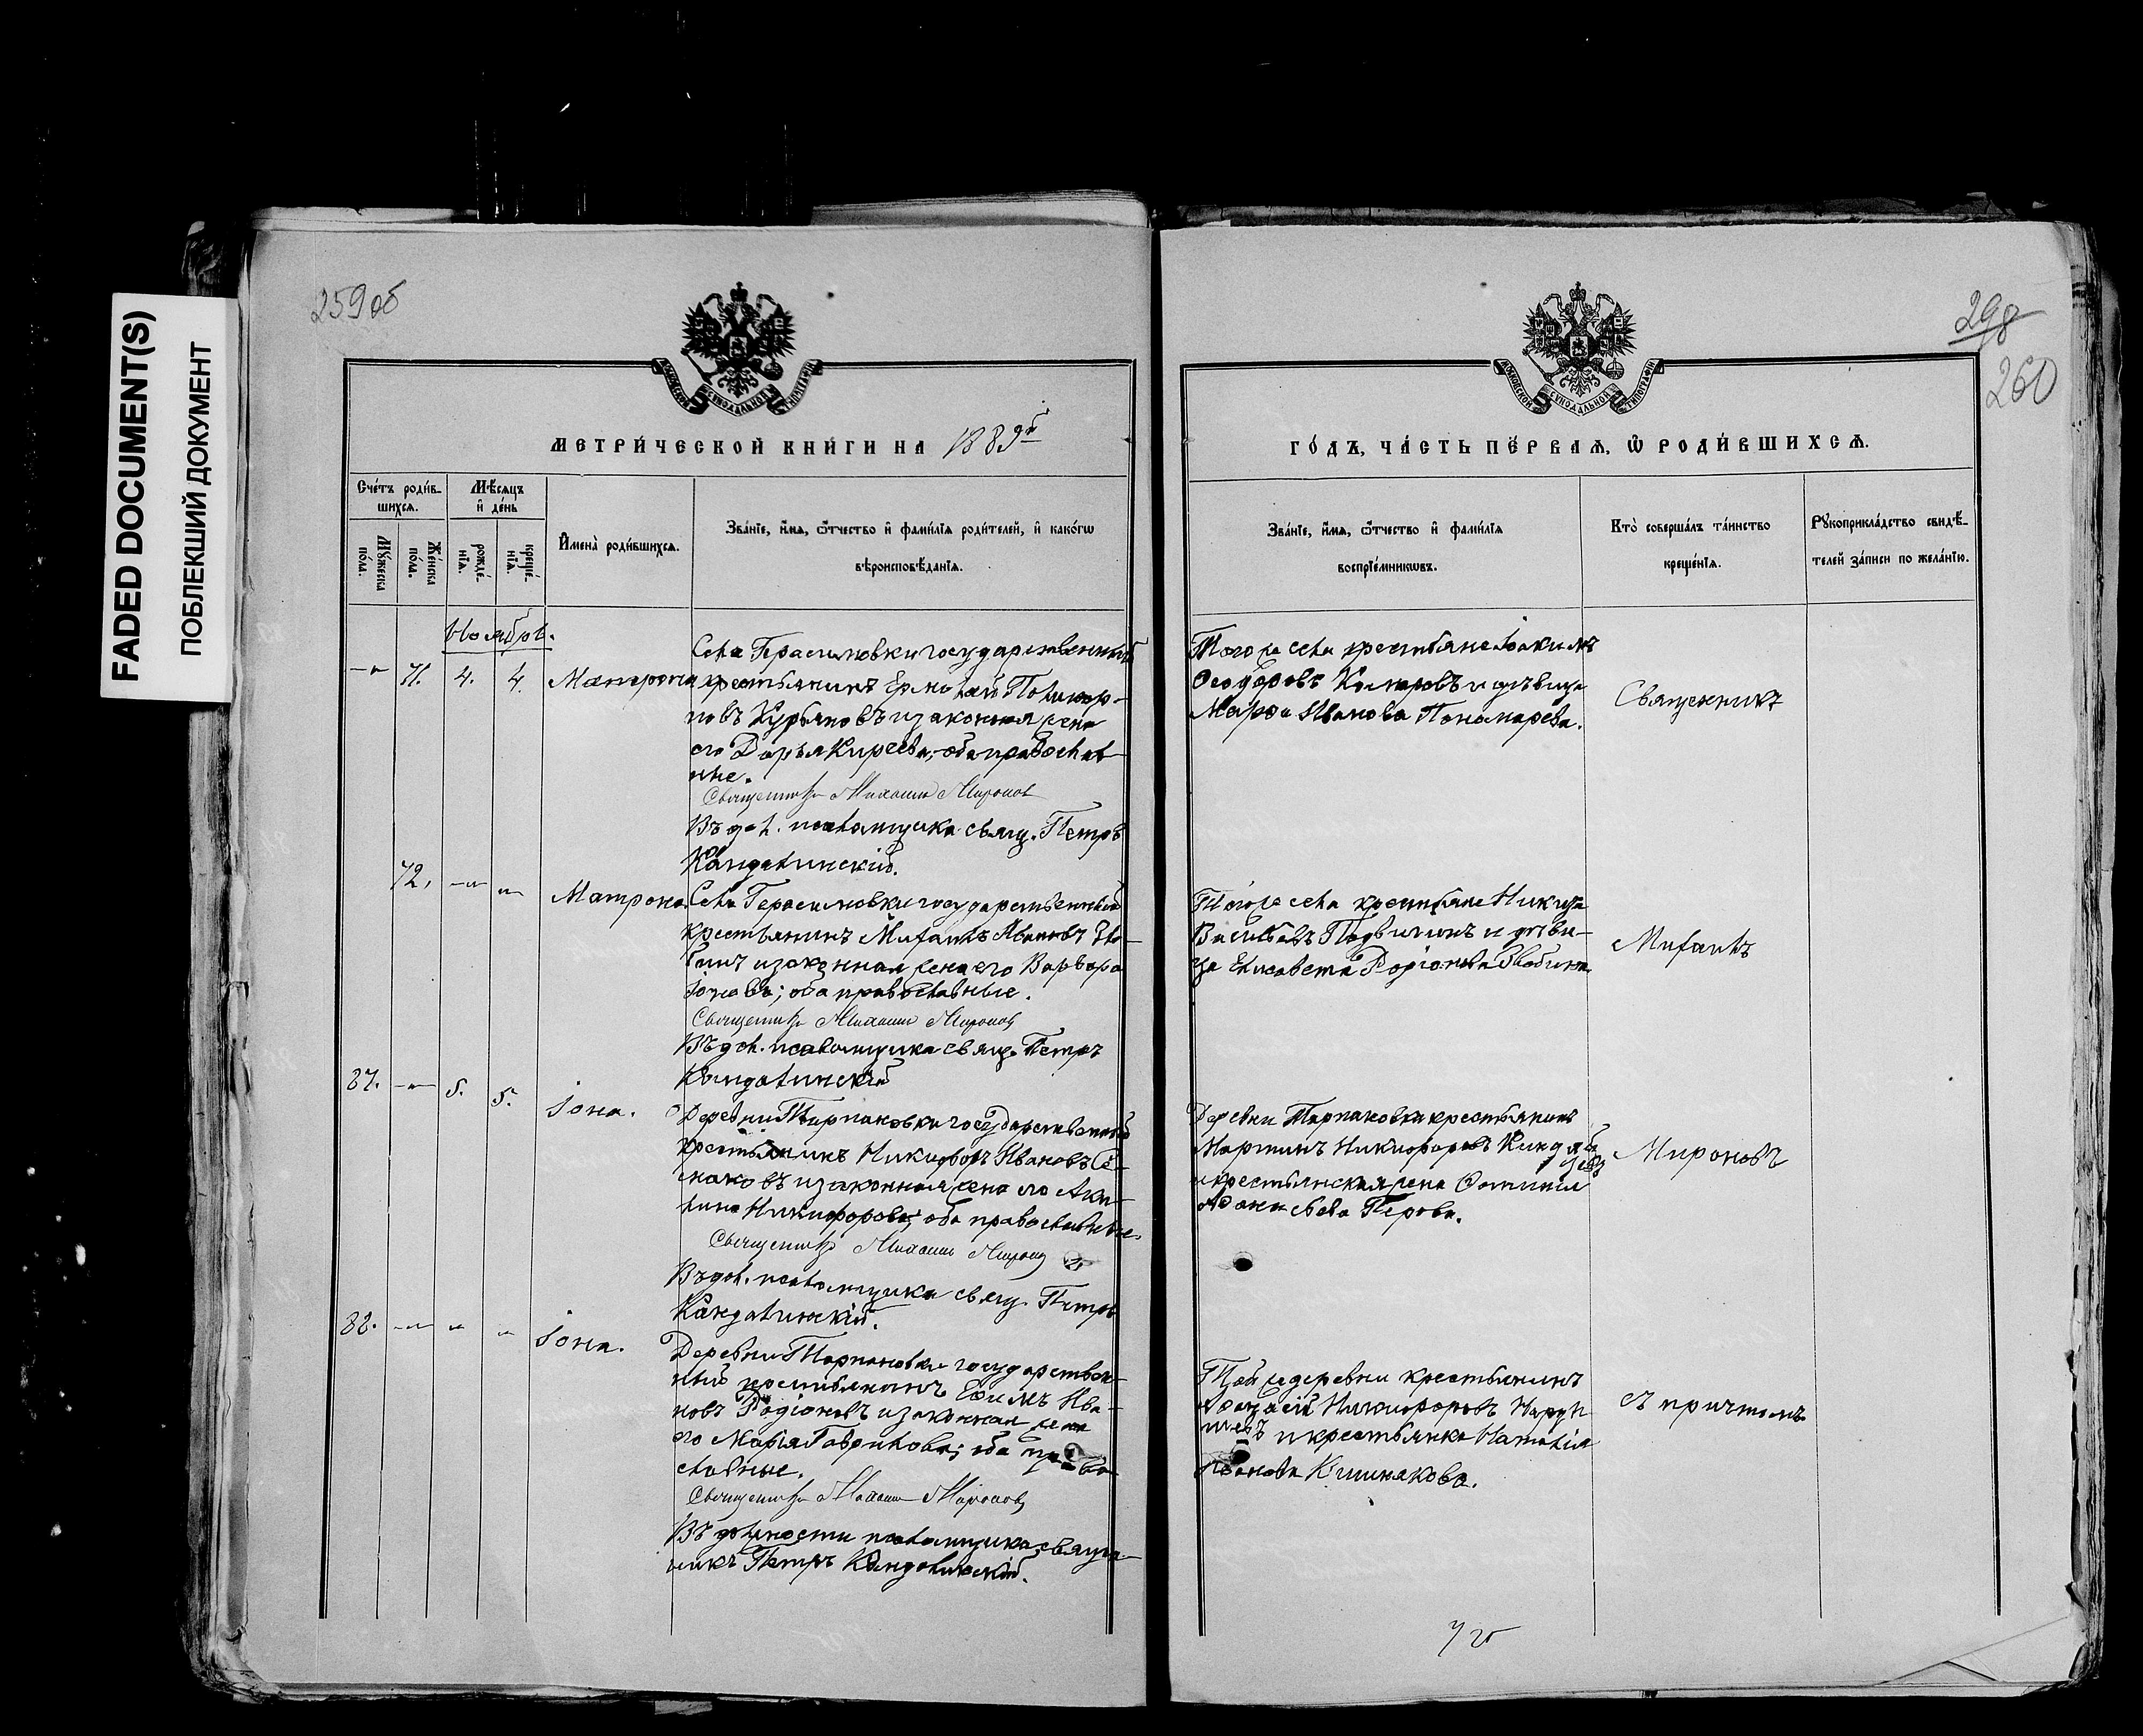 FADED DOCUMENT(S)
ПОБЛЕКШИЙ ДОКУМЕНТ
259об
298
260
МОСКОВСКОЙ СУНОДАЛЬНОЙ ТИПОГРАФІИ
МОСКОВСКОЙ СУНОДАЛЬНОЙ ТИПОГРАФІИ
МЕТРИ́ЧЕСКОЙ КНИ́ГИ НА 1889й
ГО́ДЪ, ЧА́СТЬ ПЕ́РВАѦ, Ѡ РОДИ́ВШИХСѦ.
Сче́тъ роди́в-
шихсѧ.
Мѣ́сѧцъ
и҆ де́нь
Мꙋ́жеска
по́ла.
Же́нска
по́ла.
рожде́-
нїѧ.
креще́-
нїѧ.
И҆мена̀ роди́вшихсѧ.
Зва́нїе, и҆́мѧ, ѻ҆́тчество и҆ фами́лїѧ роди́телей, и҆ како́гѡ
вѣроисповѣ́данїѧ.
Зва́нїе, и҆́мѧ, ѻ҆́тчество и҆ фами́лїѧ
воспрїе́мникѡвъ.
Кто̀ соверша́лъ та́инство
креще́нїѧ.
Рꙋкоприкла́дство свидѣ́-
телей за́писи по жела́нїю.
Ноябрь.
71. 4. 4. Матрона
Села Герасимовки государственный
крестьянинъ Ермолай
Курбановъ и законная жена
его Дарья Киреева; оба православ-
ные.
Священникъ Михаилъ Мироновъ
Въ дол. псаломщика свящ. Петръ
Кандалинскій.
Того же села крестьяне Іоакимъ
Ѳеодоровъ Комаровъ и дѣвица
Марѳа Иванова Пономарева.
Священникъ
72. Матрона.
Села Герасимовки государственный
крестьянинъ Михаилъ Ивановъ Зло-
бинъ и законная жена его Варвара
Іонова; оба православные.
Священникъ Михаилъ Мироновъ
Въ дол. псаломщика свящ. Петръ
Кандалинскій
Того же села крестьяне Никита
Васильевъ и дѣви-
ца Елисавета Родіонова Злобина.
Михаилъ
87. 5. 5. Іона.
Деревни Тарпановки государственный
крестьянинъ Никифоръ Ивановъ Се-
маковъ и законная жена его Аки-
лина Никифорова; оба православные.
Священникъ Михаилъ Мироновъ
Въ дол. псаломщика свящ. Петръ
Кандалинскій.
Деревни Тарпановки крестьянинъ
Мартинъ Никифоровъ
и крестьянская жена Фотинія
Перова.
Мироновъ
88. Іона.
Деревни Тарпановки государствен-
ный крестьянинъ Ефимъ Ива-
новъ Родіоновъ и законная жена
его Марія Гаврилова; оба право-
славные.
Священникъ Михаилъ Мироновъ
Въ должности псаломщика священ-
никъ Петръ Кандалинскій.
Той же деревни крестьянинъ
Никифоровъ
и крестьянка Наталія
Иванова Кишнякова.
съ причтомъ